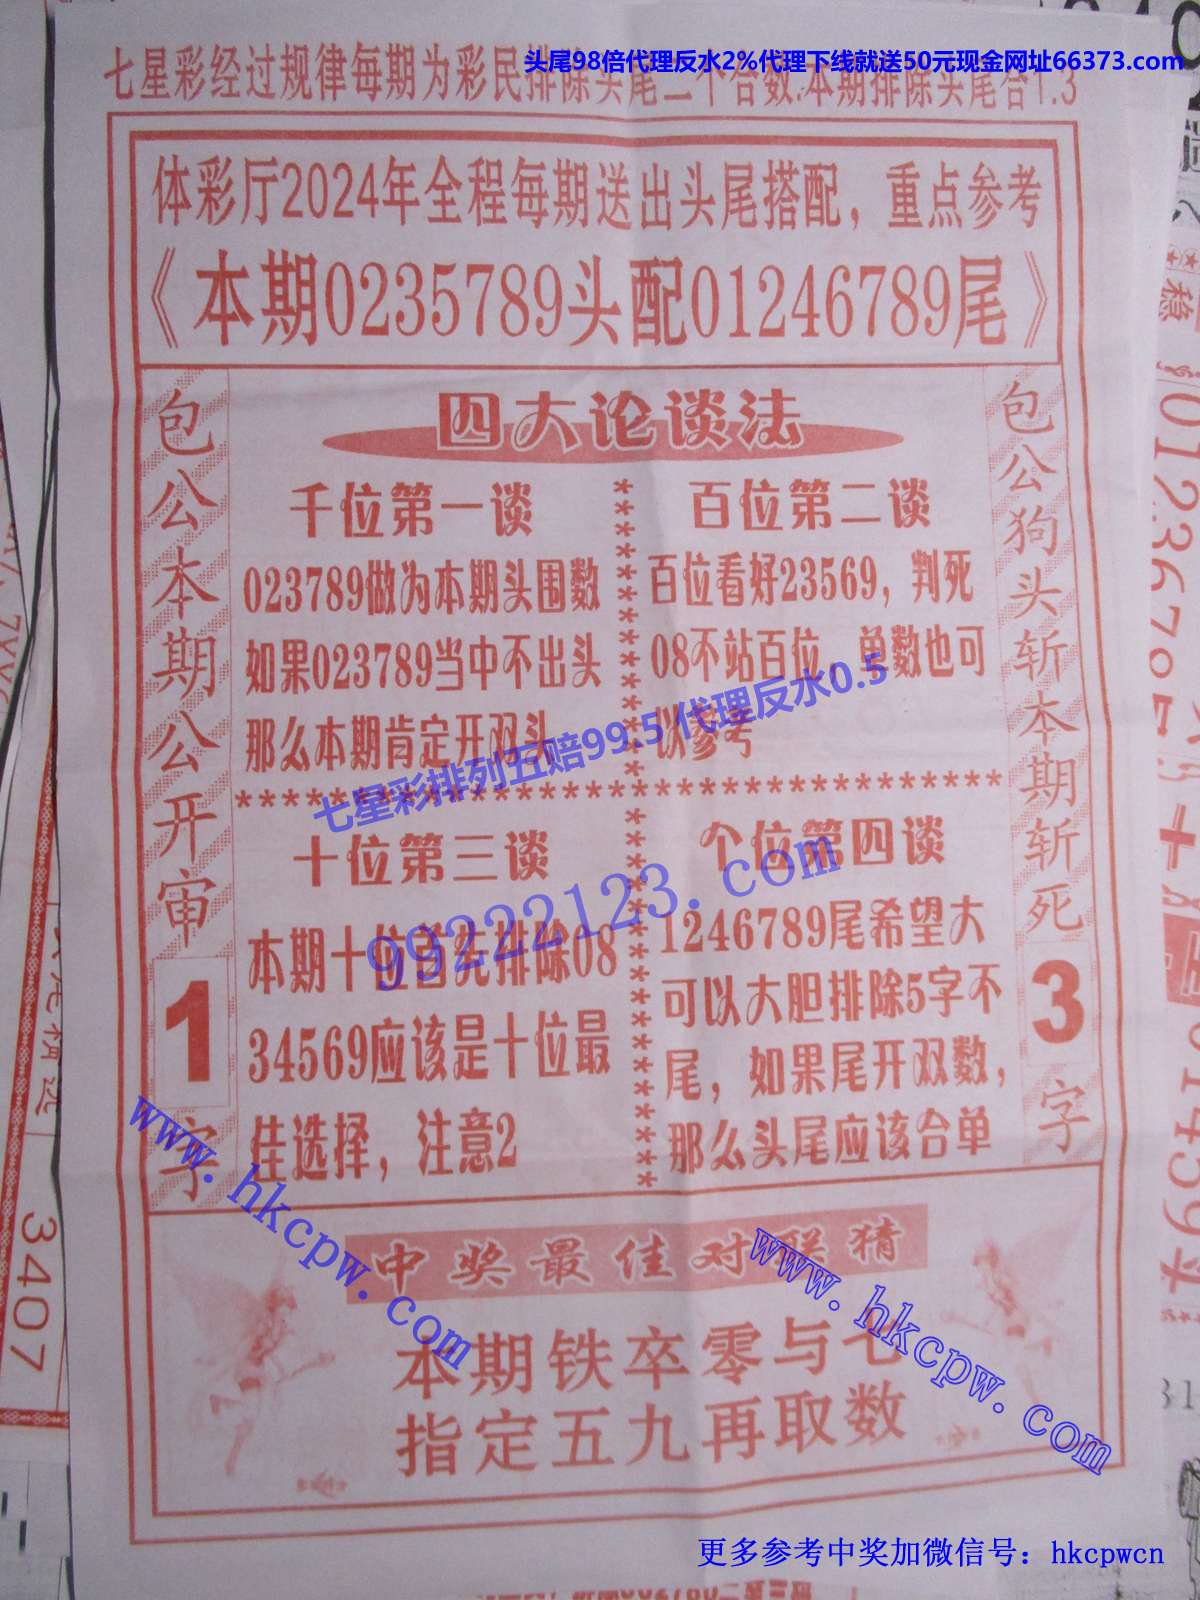 头尾98倍代理反水2%代理下线就送50元现金网址66373.com
七星彩经过规律每期为彩民排除头尾二个合数:本期排除头尾合1.3
体彩厅2024年全程每期送出头尾搭配，重点参考
《本期0235789头配01246789尾》
包公本期公开审1字
四大论谈法
千位第一谈
023789做为本期头围数
如果023789当中不出头
那么本期肯定开双头
百位第二谈
百位看好23569，判死
08不站百位，单数也可
以参考
七星彩排列五赔99.5代理反水0.5
99222123.com
十位第三谈
本期十位首先排除08
34569应该是十位最
佳选择，注意2
个位第四谈
1246789尾希望大
可以大胆排除5字不
尾，如果尾开双数，
那么头尾应该合单
包公狗头斩本期斩死3字
中奖最佳对联猜
本期铁卒零与七
指定五九再取数
www.hkcpw.com
www.hkcpw.com
3407
更多参考中奖加微信号：hkcpwcn